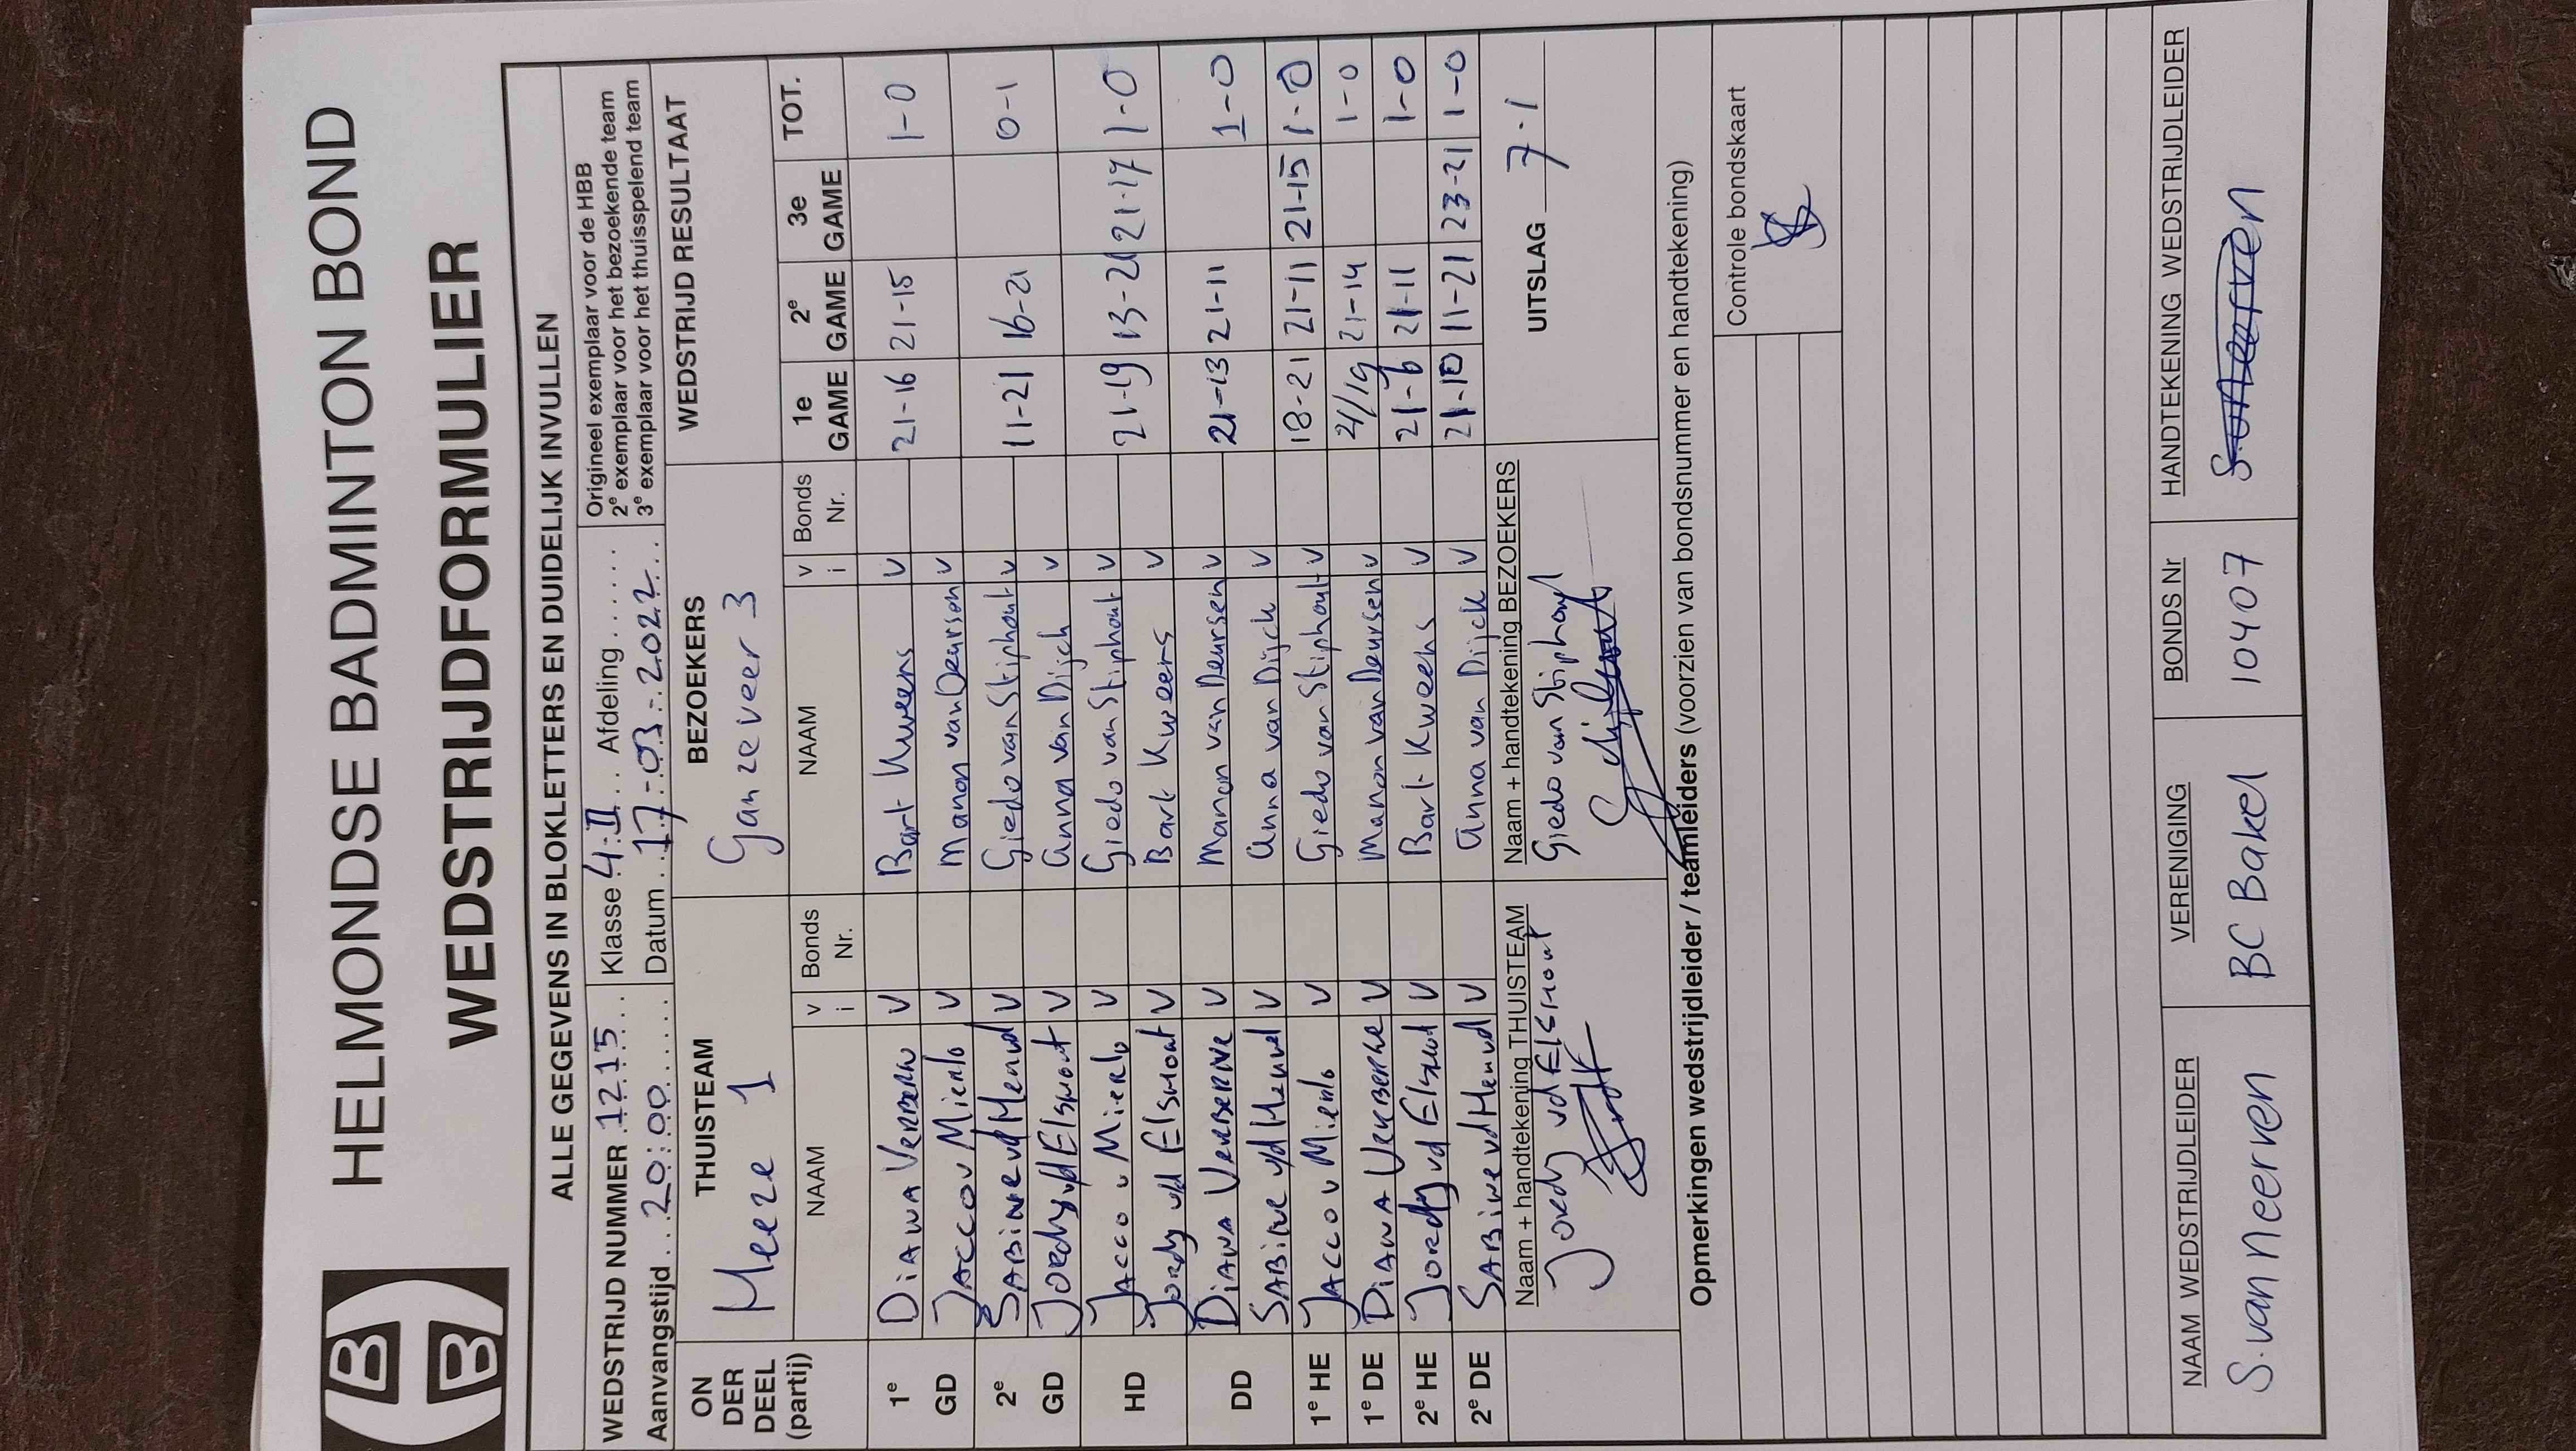 HELMONDSE BADMINTON BOND
WEDSTRIJDFORMULIER
B
B
ALLE GEGEVENS IN BLOKLETTERS EN DUIDELIJK INVULLEN
WEDSTRIJD NUMMER 1215 Klasse 4 II Afdeling
Aanvangstijd 20:00 Datum 17-03-2022
Origineel exemplaar voor de HBB
2e exemplaar voor het bezoekende team
3e exemplaar voor het thuisspelend team
ON DER DEEL (partij) THUISTEAM BEZOEKERS WEDSTRIJD RESULTAAT
Meeze 1 Ganzeveer 3
NAAM v i Bonds Nr. NAAM v i Bonds Nr. 1e GAME 2e GAME 3e GAME TOT.
1e GD Diana v Bart Kweens v 21-16 21-15 1-0
Jacco v Mierlo v Manon van Deursen v
2e GD Sabine vd Heuvel v Giedo van Stiphout v 11-21 16-21 0-1
Jordy v/d Elshout v Anna van Dijck v
HD Jacco v Mierlo v Giedo van Stiphout v 21-19 13-21 21-17 1-0
Jordy v/d Elshout v Bart Kweens v
DD Diana Verberne v Manon van Deursen v 21-13 21-11 1-0
Sabine v/d Heuvel v Anna van Dijck v
1e HE Jacco v Mierlo v Giedo van Stiphout v 18-21 21-11 21-15 1-0
1e DE Diana Verberne v Manon van Deursen v 21/19 21-14 1-0
2e HE Jordy vd Elshout v Bart Kweens v 21-6 21-11 1-0
2e DE Sabine vd Heuvel v Anna van Dijck v 21-10 11-21 23-21 1-0
Naam + handtekening THUISTEAM Naam + handtekening BEZOEKERS UITSLAG 7-1
Jordy vd Elshout Giedo van Stiphout
Opmerkingen wedstrijdleider / teamleiders (voorzien van bondsnummer en handtekening)
Controle bondskaart
NAAM WEDSTRIJDLEIDER VERENIGING BONDS Nr HANDTEKENING WEDSTRIJDLEIDER
S. van Neerven BC Bakel 10407